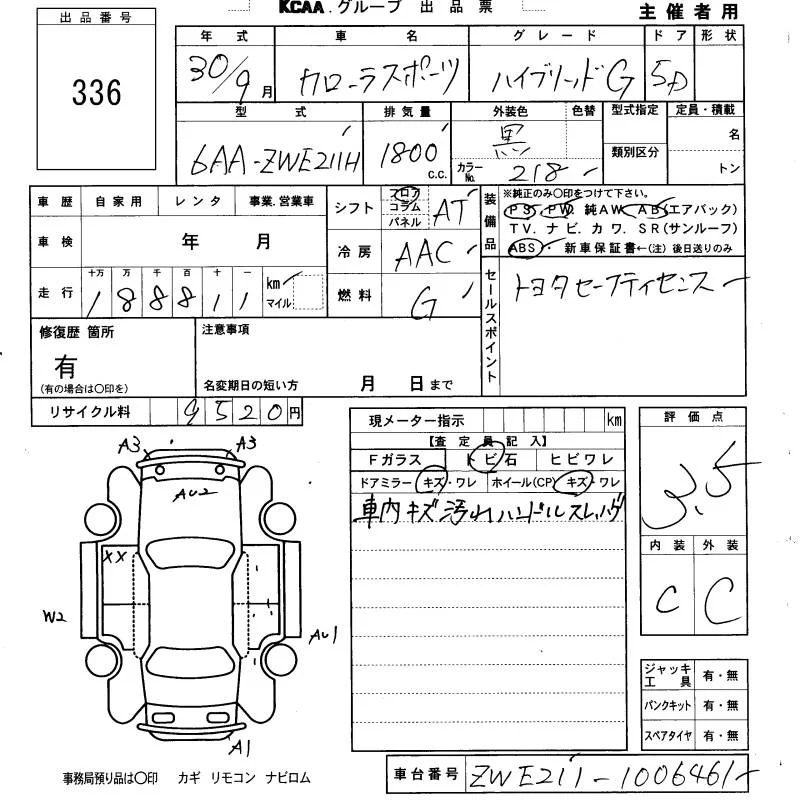 KCAA.グループ 出品票
主催者用
出品番号
336
年式 車名 グレード ドア 形状
30/9月 カローラスポーツ ハイブリッドG 5D
型式 排気量 外装色 色替 型式指定 定員・積載
6AA-ZWE211H 1800 c.c. 黒 類別区分 名
カラーNo. 218 トン
車歴 自家用 レンタ 事業.営業車
車検 年 月
走行 十万 万 千 百 十 一
188811 km マイル
シフト フロア コラム パネル AT
冷房 AAC
燃料 G
装備品
※純正のみ○印をつけて下さい。
PS. PW. 純AW. AB(エアバック)
TV. ナビ. カワ. SR(サンルーフ)
ABS. 新車保証書←(注)後日送りのみ
セールスポイント
トヨタセーフティセンス
修復歴 箇所
有
(有の場合は○印を)
注意事項
名変期日の短い方 月 日まで
リサイクル料 9520円
A3 A3
AU2
XX
W2
AU1
A1
事務局預り品は○印 カギ リモコン ナビロム
現メーター指示 km
【査定員記入】
Fガラス トビ石 ヒビワレ
ドアミラー キズ・ワレ ホイール(CP) キズ・ワレ
車内キズ汚れハンドルスレ.ハゲ
評価点
3.5
内装 外装
C C
ジャッキ工具 有・無
パンクキット 有・無
スペアタイヤ 有・無
車台番号 ZWE211-1006461